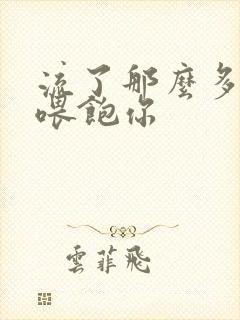 流了那麼多
喂飽你
雲菲飛